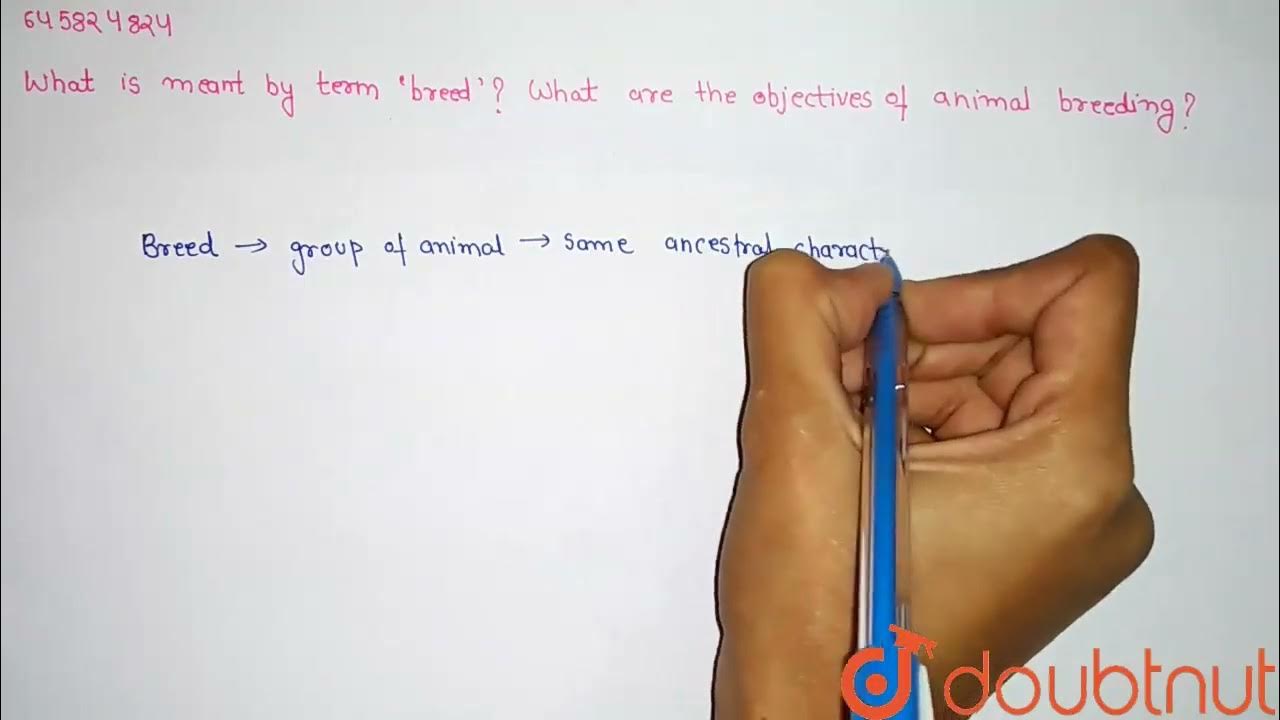 645824824
What is meant by term 'breed'? What are the objectives of animal breeding?
Breed → group of animal → same ancestral charact
doubtnut